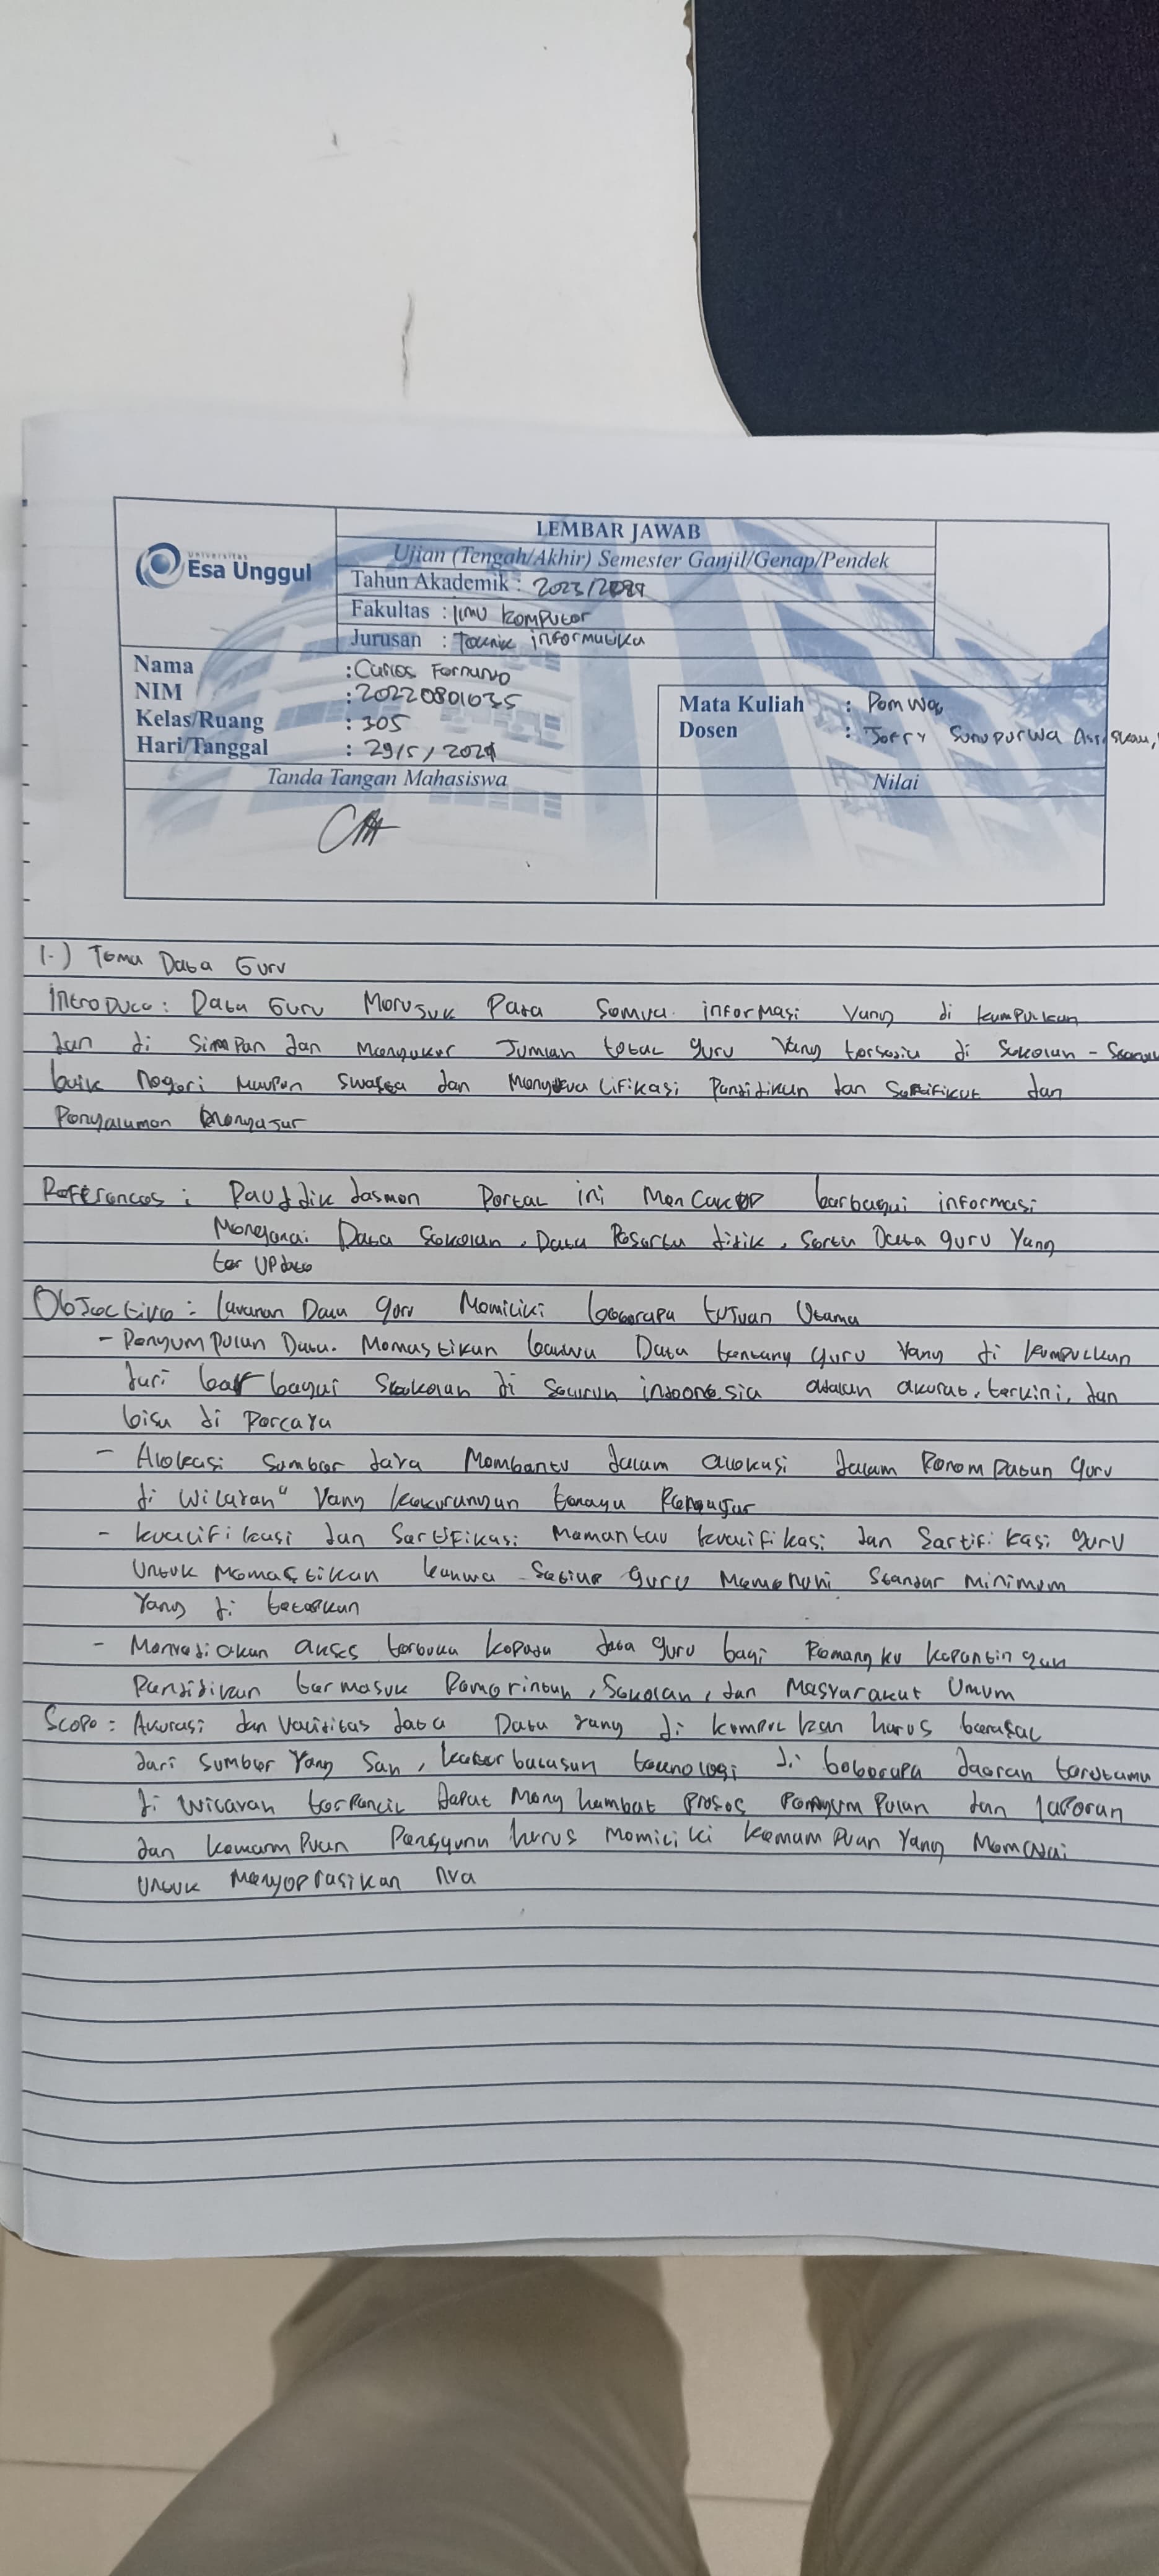 LEMBAR JAWAB
Ujian (Tengah/Akhir) Semester Ganjil/Genap/Pendek
Universitas
Esa Unggul
Tahun Akademik : 2023/2024
Fakultas : Ilmu Komputer
Jurusan : Teknik informatika
Nama : Carlos Fernando
NIM : 20220801035
Kelas/Ruang : 305
Hari/Tanggal : 29/5/2024
Mata Kuliah : Pemweb
Dosen : Jefry Sunupurwa
Tanda Tangan Mahasiswa
Nilai
1.) Tema Data Guru
Introduce : Data Guru Merujuk Pada Semua informasi Yang di kumpulkan
dan di Simpan dan Mengukur Jumlah total guru Yang tersedia di Sekolah -
baik Negeri Maupun Swasta dan pendidikan dan Sertifikat dan
Pengalaman Mengajar
References : Dasmen Portal ini Mencakup berbagai informasi
Mengenai Data Sekolah, Data Peserta didik, Serta Data guru Yang
ter Update
Objective : layanan Data guru Memiliki beberapa tujuan Utama
- Pengumpulan Data. Memastikan bahwa Data tentang guru Yang di kumpulkan
dari berbagai Sekolah di Seluruh indonesia adalah akurat, terkini, dan
bisa di Percaya
- Alokasi Sumber daya Membantu dalam alokasi dalam Penempatan guru
di Wilayah" Yang kekurangan tenaga Pengajar
- kualifikasi dan Sertifikasi Memantau kualifikasi dan Sertifikasi guru
Untuk Memastikan bahwa Setiap guru Memenuhi Standar Minimum
Yang di tetapkan
- Menyediakan akses terbuka kepada data guru bagi Pemangku kepentingan
Pendidikan termasuk Pemerintah, Sekolah, dan Masyarakat Umum
Scope : Akurasi dan Validitas data Data yang di kumpulkan harus berasal
dari Sumber Yang Sah, keterbatasan teknologi di beberapa daerah terutama
di Wilayah terpencil Dapat Menghambat Proses Pengumpulan dan laporan
dan kemampuan Pengguna harus Memiliki kemampuan Yang Memadai
Untuk Mengoprasikan nya